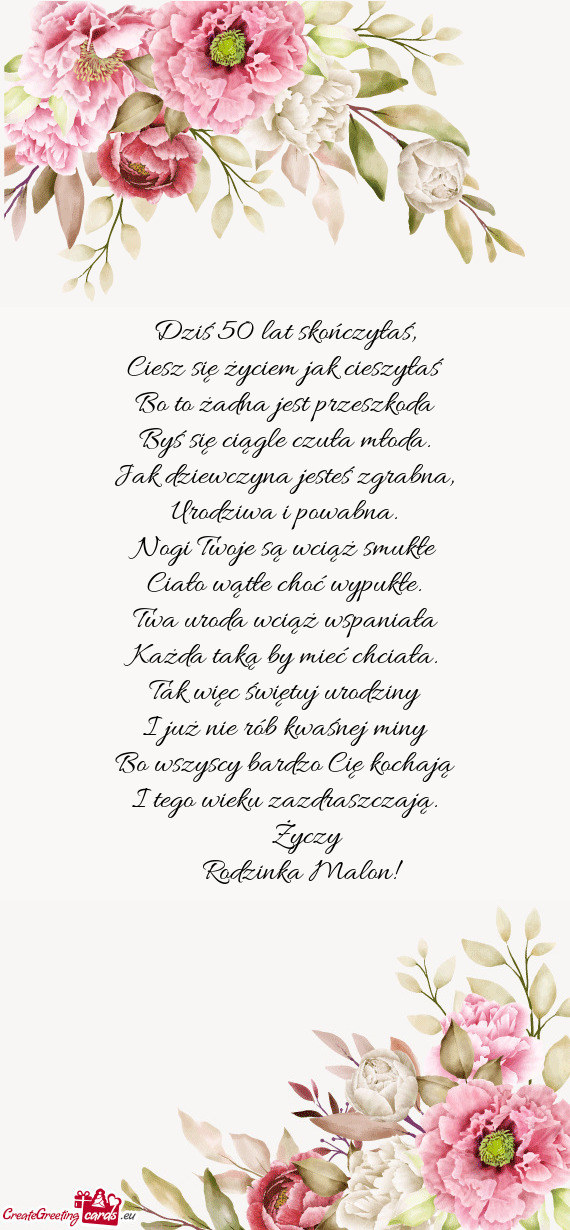 Dziś 50 lat skończyłaś,
Ciesz się życiem jak cieszyłaś
Bo to żadna jest przeszkoda
Byś się ciągle czuła młoda.
Jak dziewczyna jesteś zgrabna,
Urodziwa i powabna.
Nogi Twoje są wciąż smukłe
Ciało wątłe choć wypukłe.
Twa uroda wciąż wspaniała
Każda taką by mieć chciała.
Tak więc świętuj urodziny
I już nie rób kwaśnej miny
Bo wszyscy bardzo Cię kochają
I tego wieku zazdraszczają.
Życzy
Rodzinka Malon!
CreateGreeting cards .eu